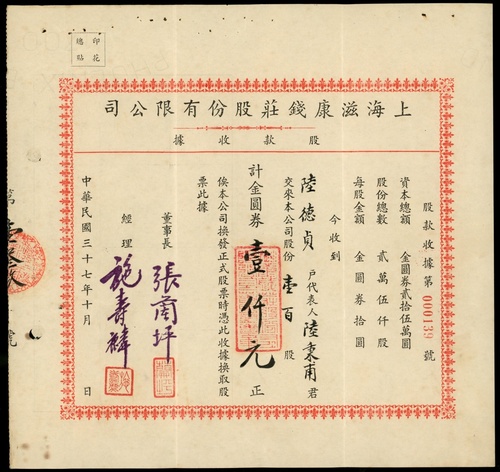 印花總貼
上海滋康錢莊股份有限公司
股款收據
股款收據第 000139 號
資本總額 金圓券貳拾伍萬圓
股份總數 貳萬伍仟股
每股金額 金圓券拾圓
今收到
陸德貞 戶代表人 陸秉甫 君
交來本公司股份 壹百 股
計金圓券 壹仟元 正
俟本公司換發正式股票時憑此收據換取股
票此據
董事長 張蘭坪
經理 施壽麟
中華民國三十七年十月 日
第
號